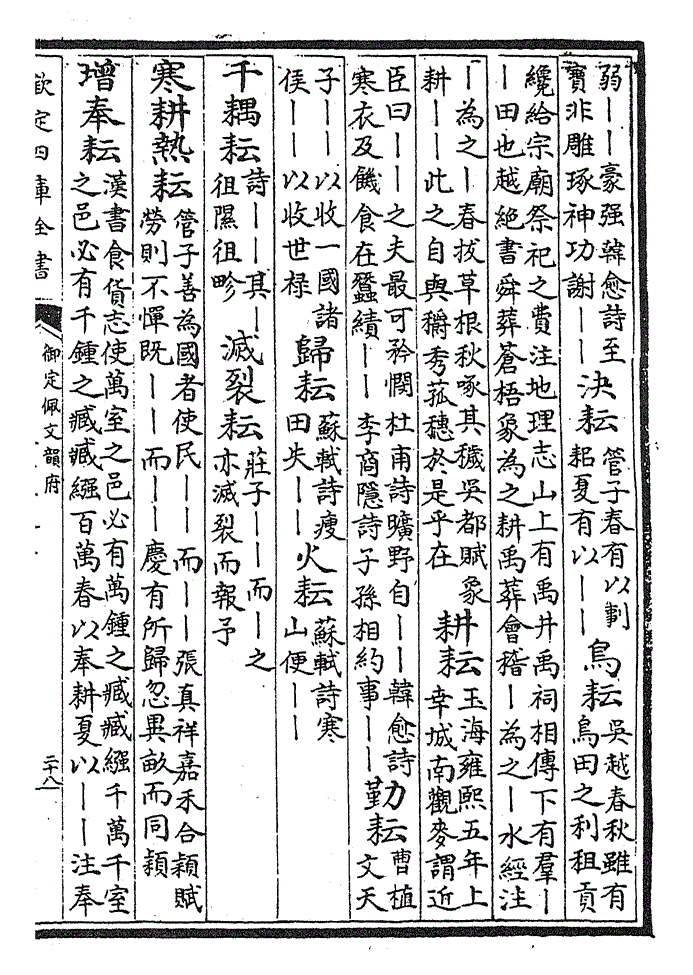 弱――豪强韓愈詩至
寶非雕琢神功謝――
決耘
管子春有以剚
耜夏有以――
鳥耘
吳越春秋雖有
鳥田之利租貢
纔給宗廟祭祀之費注地理志山上有禹井禹祠相傳下有羣―
―田也越絶書舜葬蒼梧象為之耕禹葬會稽―為之―水經注
―為之―春拔草根秋啄其穢吳都賦象
耕――此之自與穱秀菰穗於是乎在
耕耘
玉海雍熙五年上
幸城南觀麥謂近
臣曰――之夫最可矜憫杜甫詩曠野自――韓愈詩
寒衣及饑食在蠶績――李商隱詩子孫相約事――
勤耘
曹植
文天
子――以收一國諸
侯――以收世禄
歸耘
蘇軾詩瘦
田失――
火耘
蘇軾詩寒
山便――
千耦耘
詩――其―
徂隰徂畛
滅裂耘
莊子――而―之
亦滅裂而報予
寒耕熱耘
管子善為國者使民――而――張真祥嘉禾合穎賦
勞則不憚既――而――慶有所歸忽異畝而同穎
增奉耘
漢書食貨志使萬室之邑必有萬鍾之臧臧繦千萬千室
之邑必有千鍾之臧臧繦百萬春以奉耕夏以――注奉
欽定四庫全書
御定佩文韻府
二十八